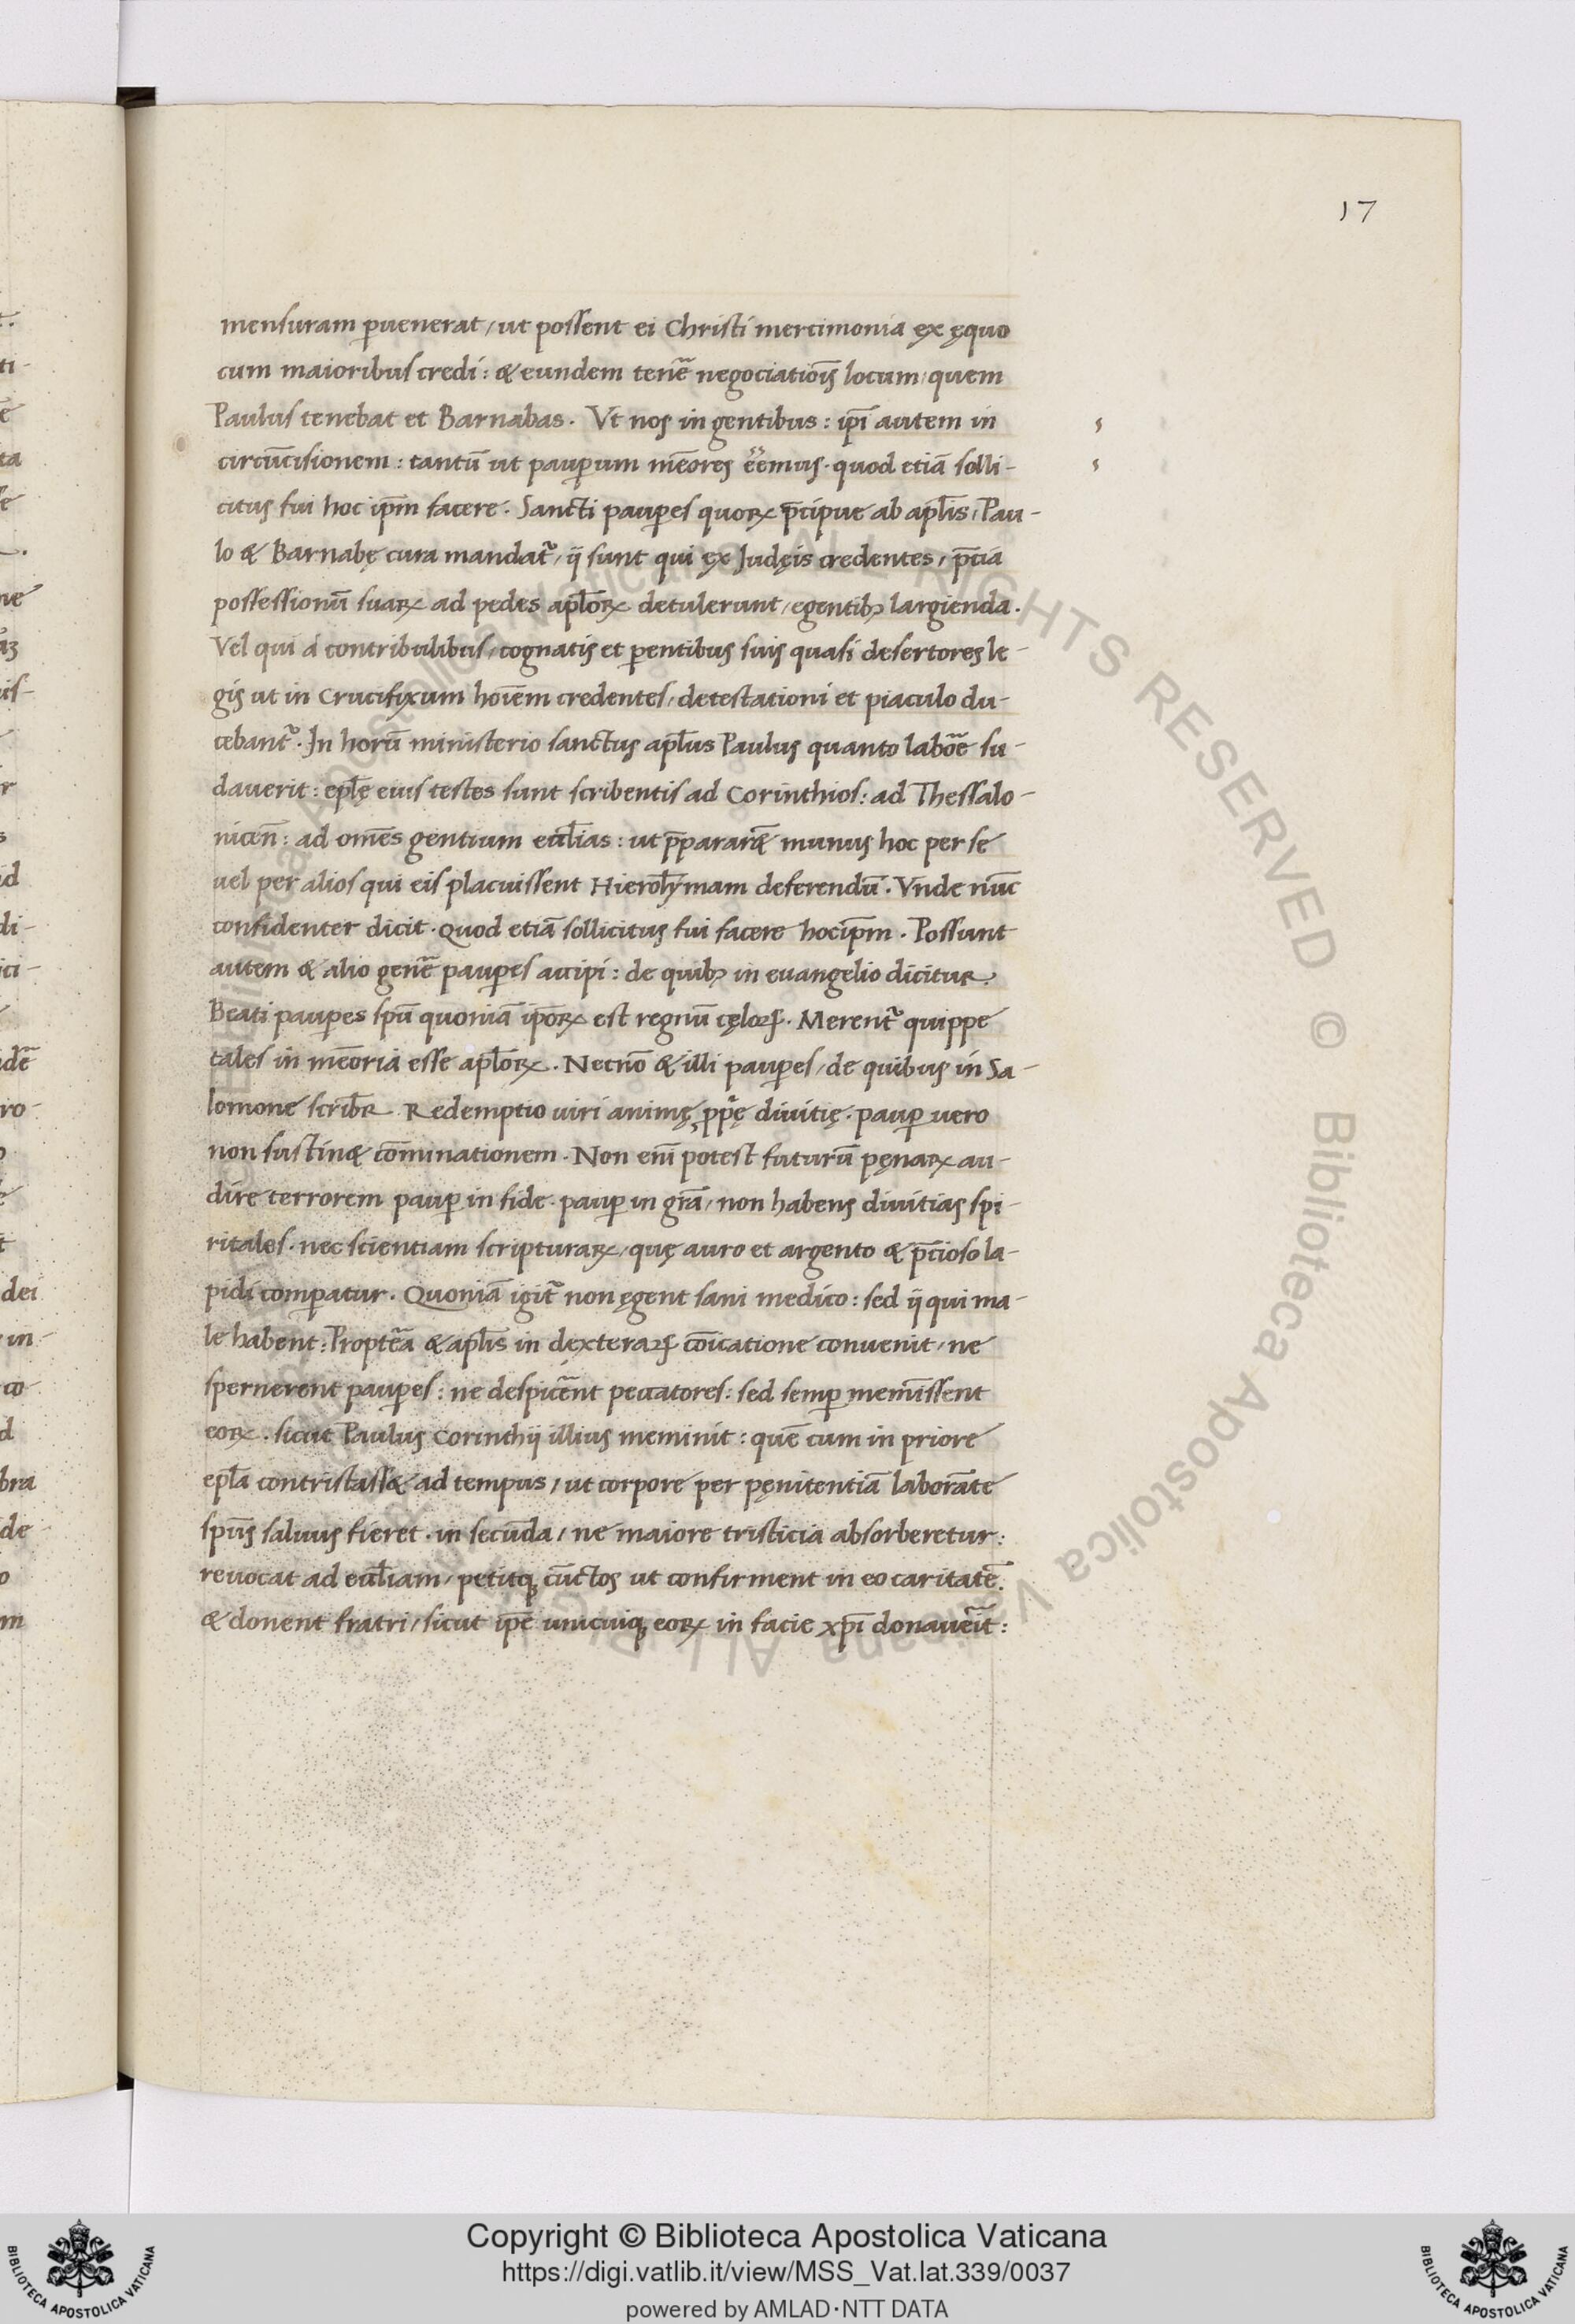 17
mensuram ꝑuenerat, ut possent ei Christi mercimonia ex ęquo
cum maioribus credi: & eundem teneᷓ negociatiōis locum, quem
Paulus tenebat et Barnabas. Vt nos in gentibus: ip̄i autem in
circūcisionem: tantū ut pauꝑum mēores eēmus. quod etiā solli-
citus fui hoc ip̄m facere. Sancti pauꝑes quoꝝ p̄cipue ab apl̄is, Pau-
lo & Barnabę cura mandat᷑, ij sunt qui ex Judęis credentes, p̄cia
possessionū suaꝝ ad pedes apl̄oꝝ detulerunt, egentibꝫ largienda.
Vel qui a contribulibus, cognatis et ꝑentibus suis quasi desertores le-
gis ut in Crucifixum hoīem credentes, detestationi et piaculo du-
cebant᷑. In horū ministerio sanctus apl̄us Paulus quanto laboᷓe su-
dauerit: epl̄ę eius testes sunt scribentis ad Corinthios: ad Thessalo-
nicen̄: ad om̄es gentium eccl̄ias: ut p̄parar& munus hoc per se
uel per alios qui eis placuissent Hierosol̄ymam deferendū. Vnde nūc
confidenter dicit. Quod etiā sollicitus fui facere hoc ip̄m. Possunt
autem & alio geneᷓ pauꝑes accipi: de quibꝫ in euangelio dicitur.
Beati pauꝑes sp̄u quoniā ip̄oꝝ est regnū cęloꝝ. Merent᷑ quippe
tales in mēoria esse apl̄oꝝ. Necnō & illi pauꝑes, de quibus in Sa-
lomone scribr̄. Redemptio uiri animę, ꝓp᷑ę diuitię. pauꝑ uero
non sustin& cōminationem. Non eniᷓ potest futurū pęnaꝝ au-
dire terrorem pauꝑ in fide. pauꝑ in gr̄a, non habens diuitias spi-
ritales. nec scientiam scripturaꝝ, quę auro et argento & p̄cioso la-
pidi comꝑatur. Quoniā igit᷑ non ęgent sani medico: sed ij qui ma-
le habent: Propteᷓa & apl̄is in dexteraꝝ cōicatione conuenit, ne
spernerent pauꝑes: ne despiceᷓnt peccatores: sed semꝑ memīssent
eoꝝ. sicut Paulus Corinthij illius meminit: quē cum in priore
epl̄a contristass& ad tempus, ut corpore per pęnitentiā laboraᷓte
sp̄us saluus fieret. in secūda, ne maiore tristicia absorberetur:
reuocat ad eccl̄iam, petitqꝫ cūctos ut confirment in eo caritatē.
& donent fratri, sicut ip̄e unicuiqꝫ eoꝝ in facie xp̄i donaueᷓit:
Copyright © Biblioteca Apostolica Vaticana
https://digi.vatlib.it/view/MSS_Vat.lat.339/0037
powered by AMLAD·NTT DATA